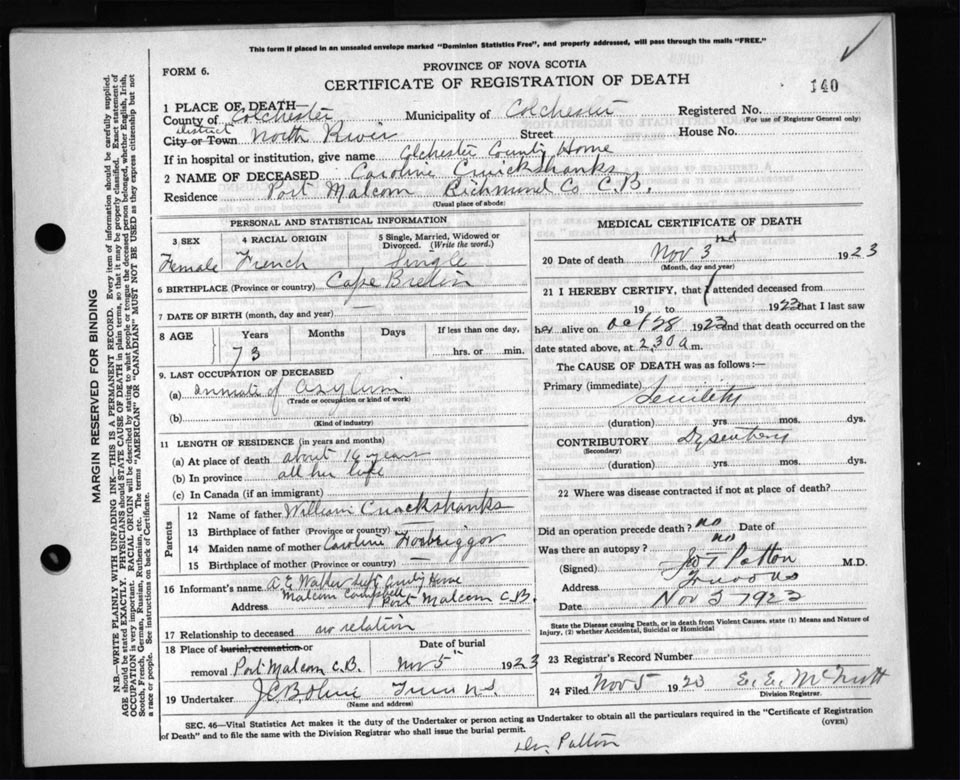 This form if placed in an unsealed envelope marked "Dominion Statistics Free", and properly addressed, will pass through the mails "FREE."
PROVINCE OF NOVA SCOTIA
FORM 6.
CERTIFICATE OF REGISTRATION OF DEATH
140
1 PLACE OF DEATH—
County of Colchester Municipality of Colchester Registered No.
(For use of Registrar General only)
district
City or Town North River Street House No.
If in hospital or institution, give name Colchester County Home
2 NAME OF DECEASED Caroline Cruickshanks
Residence Port Malcom Richmond Co C.B.
(Usual place of abode)
PERSONAL AND STATISTICAL INFORMATION
3 SEX 4 RACIAL ORIGIN 5 Single, Married, Widowed or Divorced. (Write the word.)
Female French Single
6 BIRTHPLACE (Province or country) Cape Breton
7 DATE OF BIRTH (month, day and year)
8 AGE Years Months Days If less than one day,
73 hrs. or min.
9. LAST OCCUPATION OF DECEASED
(a) inmate of asylum
(Trade or occupation or kind of work)
(b)
(Kind of industry)
11 LENGTH OF RESIDENCE (in years and months)
(a) At place of death about 16 years
(b) In province all her life
(c) In Canada (if an immigrant)
Parents
12 Name of father William Cruickshanks
13 Birthplace of father (Province or country)
14 Maiden name of mother Caroline
15 Birthplace of mother (Province or country)
16 Informant's name A.E Walker Supt County Home
Malcom Campbell
Address Port Malcom C.B.
17 Relationship to deceased no relation
18 Place of burial, cremation or Date of burial
removal Port Malcom C.B. Nov 5 1923
19 Undertaker Truro N.S.
(Name and address)
MEDICAL CERTIFICATE OF DEATH
20 Date of death Nov 3rd 1923
(Month, day and year)
21 I HEREBY CERTIFY, that I attended deceased from
19 to 1923 that I last saw
her alive on Oct 28 1923 and that death occurred on
date stated above, at 2.30 a m.
The CAUSE OF DEATH was as follows:—
Primary (immediate) Senility
(duration) yrs mos. dys.
CONTRIBUTORY Dysentery
(Secondary)
(duration) yrs. mos. dys.
22 Where was disease contracted if not at place of death?
Did an operation precede death? no Date of
Was there an autopsy? no
(Signed) Patton M.D.
Address Truro NS
Date Nov 5 1923
State the Disease causing Death, or in death from Violent Causes, state (1) Means and Nature of Injury, (2) whether Accidental, Suicidal or Homicidal
23 Registrar's Record Number
24 Filed Nov 5 1923 E. E. McNutt
Division Registrar.
SEC. 46—Vital Statistics Act makes it the duty of the Undertaker or person acting as Undertaker to obtain all the particulars required in the "Certificate of Registration of Death" and to file the same with the Division Registrar who shall issue the burial permit.
(OVER)
Dr. Patton
MARGIN RESERVED FOR BINDING
N.B.—WRITE PLAINLY WITH UNFADING INK—THIS IS A PERMANENT RECORD. Every item of information should be carefully supplied.
AGE should be stated EXACTLY. PHYSICIANS should STATE CAUSE OF DEATH in plain terms, so that it may be properly classified. Exact statement of
OCCUPATION is very important. RACIAL ORIGIN will be described by stating to what people or tongue the deceased person belonged, whether English, Irish,
Scotch, French, German, Russian, Ruthenian, etc. The terms "AMERICAN" or "CANADIAN" MUST NOT BE USED as they express citizenship but not
a race or people. See instructions on back of Certificate.